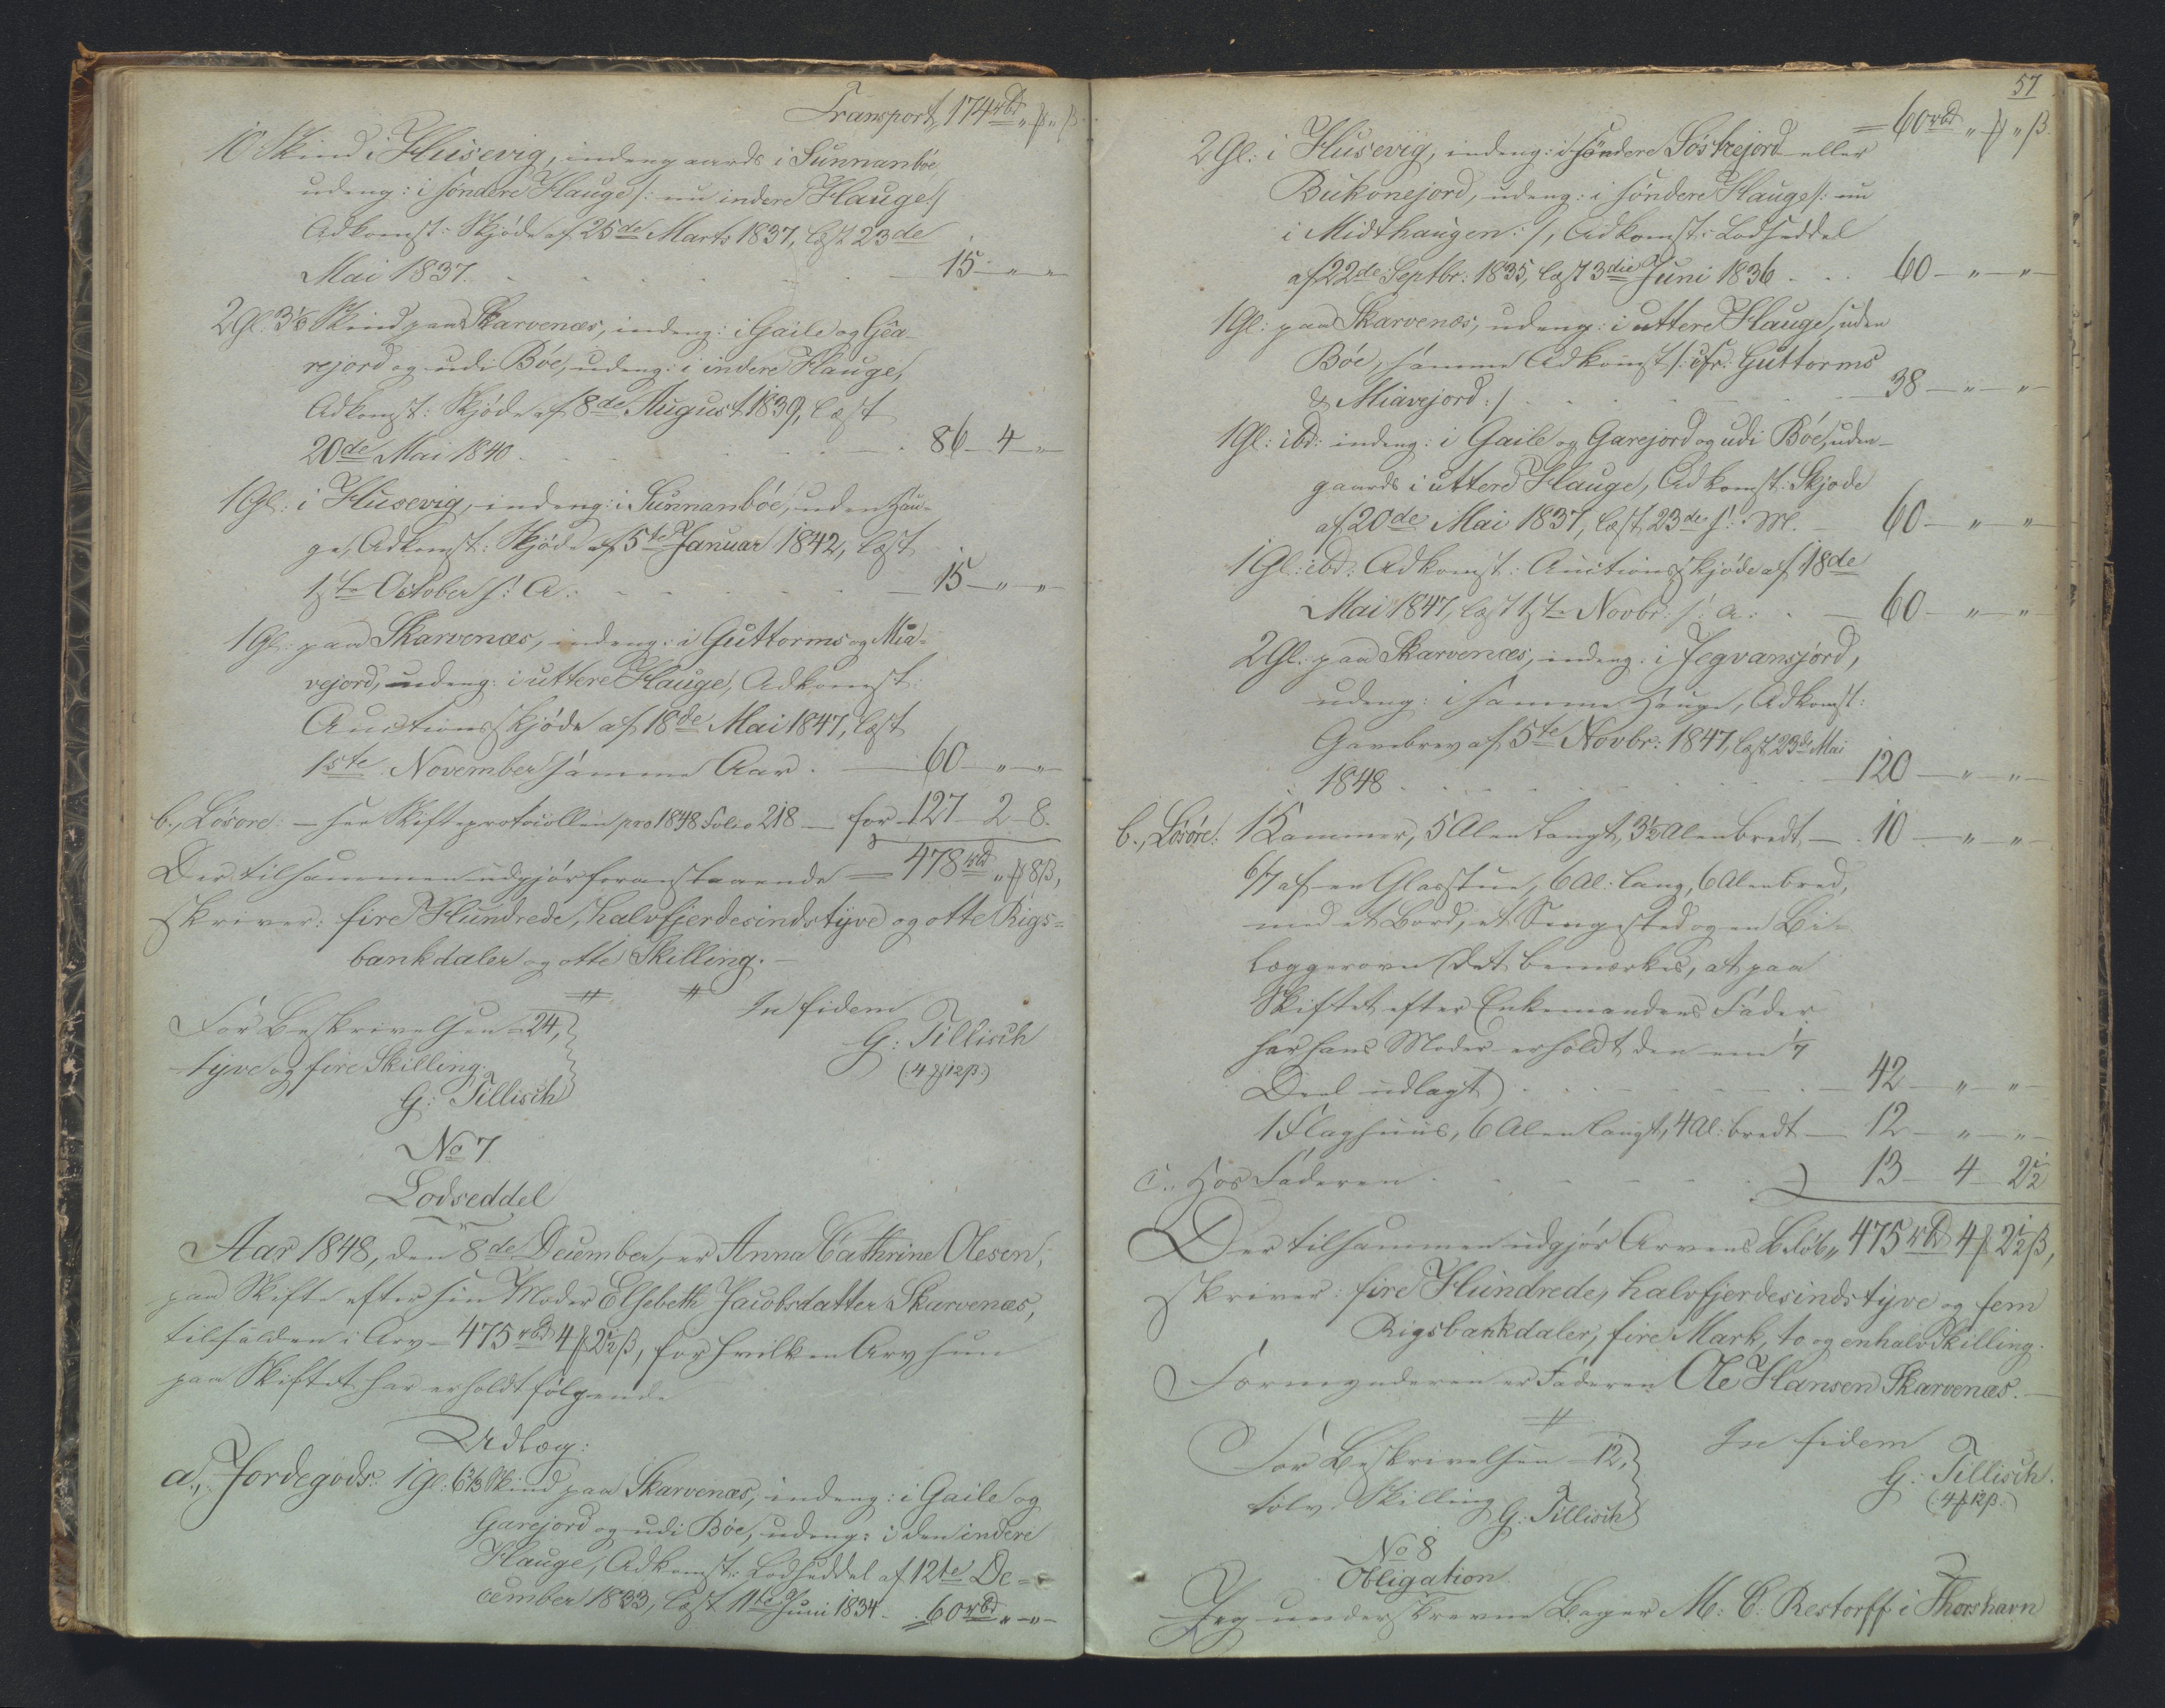 Transport, 174 rbd " ₰ " ß.
10 Skind i Husevig, indengaards i Sunnanbóe,
udeng: i søndere Hauge /: nu indere Hauge:/
Adkomst: Skjöde af 25de Marts 1837, læst 23de
Mai 1837. 15 - " - "
2 Gl. 3 1/3 Skind paa Skarvenæs, indeng: i Gaile og Gea-
rejord og udi Bóe, udeng: i indere Hauge,
Adkomst: Skjöde af 8de August 1839, læst
20de Mai 1840. 86 - 4 - "
1 Gl: i Husevig, indeng: i Sunnanbóe, uden Hau-
ge, Adkomst: Skjöde af 5te Januar 1842, læst
1ste October s: A: 15 - " - "
1 Gl: paa Skarvenæs, indeng: i Guttorms og Mia-
vejord, udeng: i uttere Hauge, Adkomst:
Auctionsskjöde af 18de Mai 1847, læst
1ste November samme Aar. 60 - " - "
b., Lösöre: - see Skifteprotocollen pro 1848 Folio 218 - for 127 - 2 - 8.
Der tilsammen udgjör foranstaaende = 478 rbd " ₰ 8 ß,
skriver: fire Hundrede, halvfjerdesindstyve og otte Rigs-
bankdaler og otte Skilling. -
For Beskrivelsen 24,
tyve og fire Skilling.
G: Tillisch
In fidem
G: Tillisch
(4 ₰ 12 ß.)
No 7
Lodseddel
Aar 1848, den 8de December, er Anna Cathrine Olesen,
paa Skifte efter sin Moder Elsebeth Jacobsdatter Skarvenæs,
tilfalden i Arv - 475 rbd 4 ₰ 2½ ß, for hvilken Arv hun
paa Skiftet har erholdt følgende
Udlæg:
a., Jordegods: 1 Gl: 6 2/3 Skind paa Skarvenæs, indeng: i Gaile og
Garejord og udi Bóe, udeng: i den indere
Hauge, Adkomst: Lodseddel af 12te De-
cember 1833, læst 11te Juni 1834 - 60 rbd " - " -
57
= 60 rbd " ₰ " ß.
2 Gl: i Husevig, indeng: i søndere Sóstrejord eller
Bukonejord, udeng: i søndere Hauge /: nu
i Midthaugen :/, Adkomst: Lodseddel
af 22de Septbr: 1835, læst 3die Juni 1836 60 - " - "
1 Gl: paa Skarvenæs, udeng: i uttere Hauge, uden
Bóe, samme Adkomst /: cfr: Guttorms
& Miavejord :/ 38 - " - "
1 Gl: ibd: indeng: i Gaile og Garejord og udi Bóe, uden-
gaards i uttere Hauge, Adkomst: Skjöde
af 20de Mai 1837, læst 23de s: M. 60 - " - "
1 Gl: ibd: Adkomst: Auctionsskjöde af 18de
Mai 1847, læst 1ste Novbr: s: a: 60 - " - "
2 Gl. paa Skarvenæs, indeng: i Jegvansjord,
udeng: i samme Hauge, Adkomst:
Gavebrev af 5te Novbr: 1847, læst 23de Mai
1848 120 - " - "
b., Lösöre: 1 Kammer, 5 Alen langt, 3½ Alen bredt - 10 - " - "
6/7 af en Glasstue, 6 Al: lang, 6 Alen bred,
med et Bord, et Sengested og en Bi-
læggerovn (det bemærkes, at paa
Skiftet efter Enkemandens Fader
har hans Moder erholdt den ene 1/7
Deel udlagt) 42 - " - "
1 Slaghuus, 6 Alen langt, 4 Al: bredt - 12 - " - "
c., Hos Faderen 13 - 4 - 2½
Der tilsammen udgjör Arvens Belöb 475 rbd 4 ₰ 2½ ß,
skriver: fire Hundrede, halvfjerdesindstyve og fem
Rigsbankdaler, fire Mark, to og en halv Skilling.
Formynderen er Faderen Ole Hansen Skarvenæs. -
For Beskrivelsen 12,
tolv Skilling
G: Tillisch
In fidem
G: Tillisch.
(4 ₰ 12 ß.)
No 8
Obligation
Jeg underskrevne Bager M: C: Restorff i Thorshavn